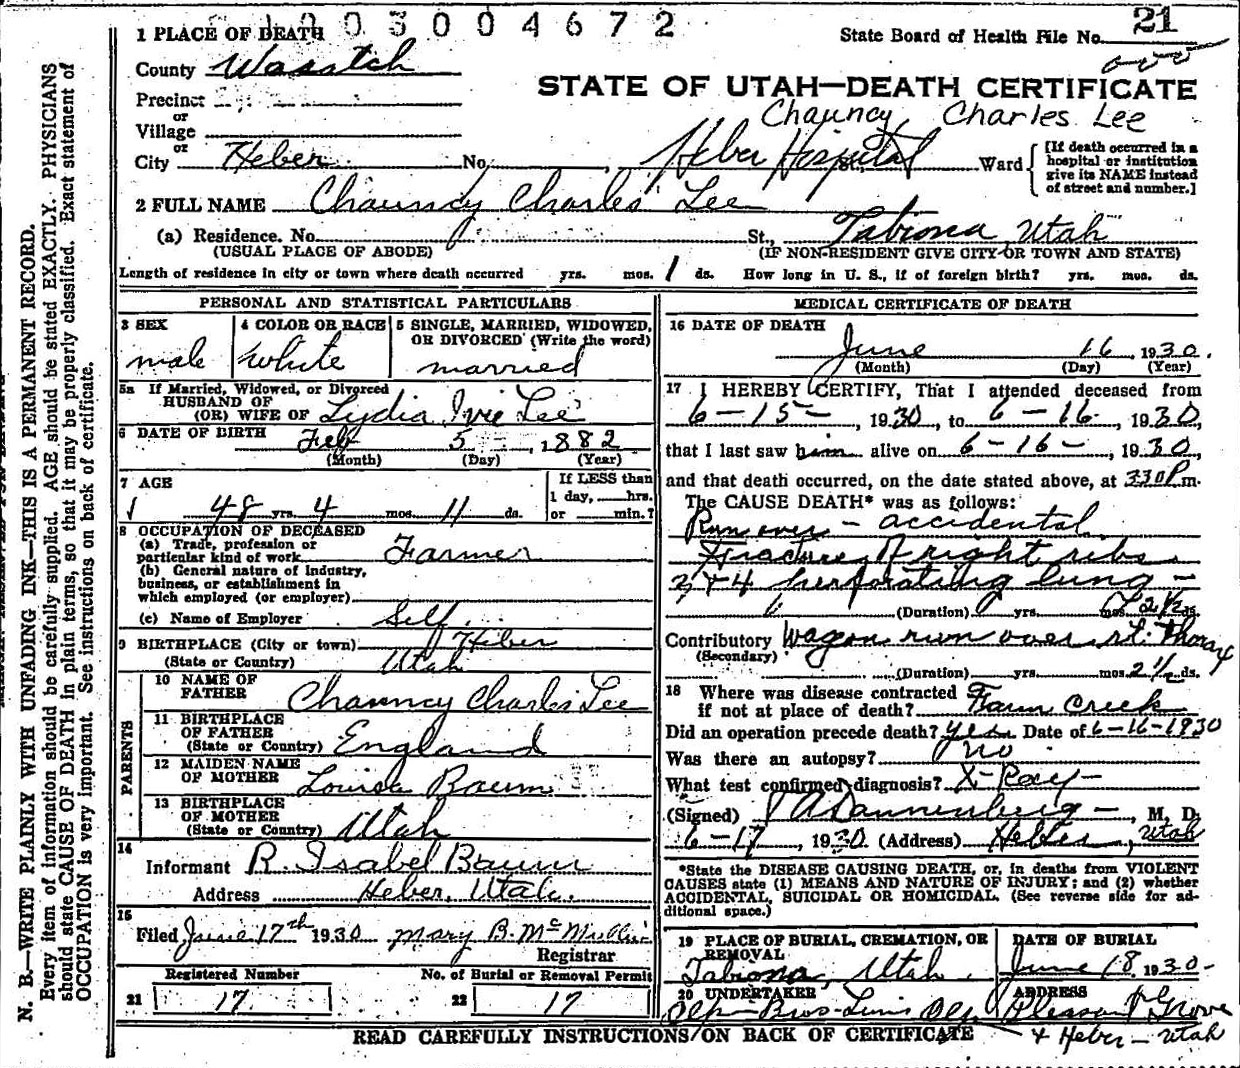 0 0 3 0 0 4 6 7 2
1 PLACE OF DEATH
State Board of Health File No. 21
County Wasatch
STATE OF UTAH—DEATH CERTIFICATE
Precinct
or
Village
Chauncy Charles Lee
or
City Heber No. Heber Hospital St., Ward
[If death occurred in a hospital or institution give its NAME instead of street and number.]
2 FULL NAME Chauncy Charles Lee
(a) Residence. No. St., Tabiona, Utah
(USUAL PLACE OF ABODE) (IF NON-RESIDENT GIVE CITY OR TOWN AND STATE)
Length of residence in city or town where death occurred yrs. mos. 1 ds. How long in U. S., if of foreign birth? yrs. mos. ds.
PERSONAL AND STATISTICAL PARTICULARS
3 SEX
male
4 COLOR OR RACE
white
5 SINGLE, MARRIED, WIDOWED, OR DIVORCED (Write the word)
married
5a If Married, Widowed, or Divorced
HUSBAND OF
(OR) WIFE OF Lydia Ivie Lee
6 DATE OF BIRTH Feb 5, 1882
(Month) (Day) (Year)
7 AGE
48 yrs. 4 mos. 11 ds.
If LESS than
1 day, hrs.
or min.?
8 OCCUPATION OF DECEASED
(a) Trade, profession or
particular kind of work Farmer
(b) General nature of Industry,
business, or establishment in
which employed (or employer)
(c) Name of Employer Self
9 BIRTHPLACE (City or town) Heber
(State or Country) Utah
PARENTS
10 NAME OF
FATHER Chauncy Charles Lee
11 BIRTHPLACE
OF FATHER
(State or Country) England
12 MAIDEN NAME
OF MOTHER Louisa Baum
13 BIRTHPLACE
OF MOTHER
(State or Country) Utah
14
Informant R. Isabel Baum
Address Heber, Utah.
15
Filed June 17th 1930 Mary B. McMullin
Registrar
Registered Number No. of Burial or Removal Permit
21 17 22 17
MEDICAL CERTIFICATE OF DEATH
16 DATE OF DEATH
June 16, 1930.
(Month) (Day) (Year)
17 I HEREBY CERTIFY, That I attended deceased from
6-15-, 1930, to 6-16-, 1930,
that I last saw him alive on 6-16-, 1930,
and that death occurred, on the date stated above, at 330P m.
The CAUSE DEATH* was as follows:
Run over - accidental
Fracture of right ribs
3 + 4 perforating lung -
(Duration) yrs. mos. 2 1/2 ds.
Contributory Wagon run over rt. Thorax
(Secondary)
(Duration) yrs. mos. 2 1/2 ds.
18 Where was disease contracted
if not at place of death? Creek
Did an operation precede death? Yes Date of 6-16-1930
Was there an autopsy? no
What test confirmed diagnosis? X-Ray-
(Signed) Dannenberg-, M. D.
6-17, 1930 (Address) Heber, Utah
*State the DISEASE CAUSING DEATH, or, in deaths from VIOLENT
CAUSES state (1) MEANS AND NATURE OF INJURY; and (2) whether
ACCIDENTAL, SUICIDAL OR HOMICIDAL. (See reverse side for ad-
ditional space.)
19 PLACE OF BURIAL, CREMATION, OR
REMOVAL
Tabiona, Utah.
DATE OF BURIAL
June 18, 1930-
20 UNDERTAKER
Olp Bros-
ADDRESS
Pleasant Grove
+ Heber - Utah
READ CAREFULLY INSTRUCTIONS ON BACK OF CERTIFICATE
N. B.—WRITE PLAINLY WITH UNFADING INK—THIS IS A PERMANENT RECORD.
Every item of information should be carefully supplied. AGE should be stated EXACTLY. PHYSICIANS
should state CAUSE OF DEATH in plain terms, so that it may be properly classified. Exact statement of
OCCUPATION is very important. See instructions on back of certificate.